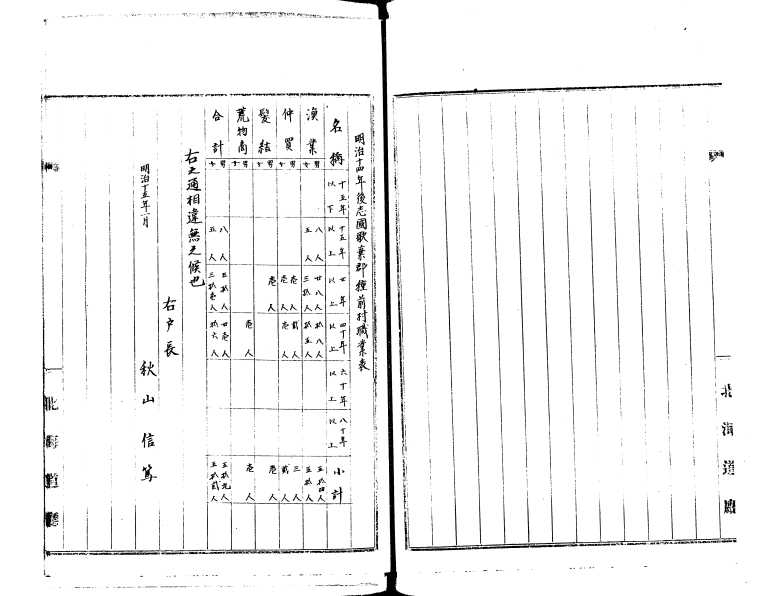 明治十四年後志國歌棄郡種前村職業表
名稱 十五年以下 十五年以上 廿年以上 四十年以上 六十年以上 八十年以上 小計
漁業 男 八人 廿八人 拾八人 五拾四人
女 五人 三拾人 拾五人 五拾人
仲買 男 壱人 貳人 三人
女 壱人 壱人 貳人
髪結 男 壱人 壱人
女
荒物商 男 壱人 壱人
女
合計 男 八人 三拾人 廿壱人 五拾九人
女 五人 三拾壱人 拾六人 五拾貳人
右之通相違無之候也
右戸長
明治十五年一月
秋山信篤
北海道廳
北海道廳